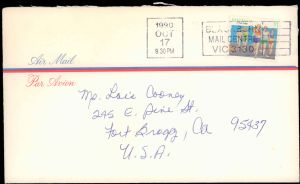 1990
OCT
17
9:30PM
BLACKBURN
MAIL CENTRE
VIC 3130
Air Mail
Par Avion
Ms. Lois Cooney
245 E. Pine St.
Fort Bragg, Ca 95437
U.S.A.